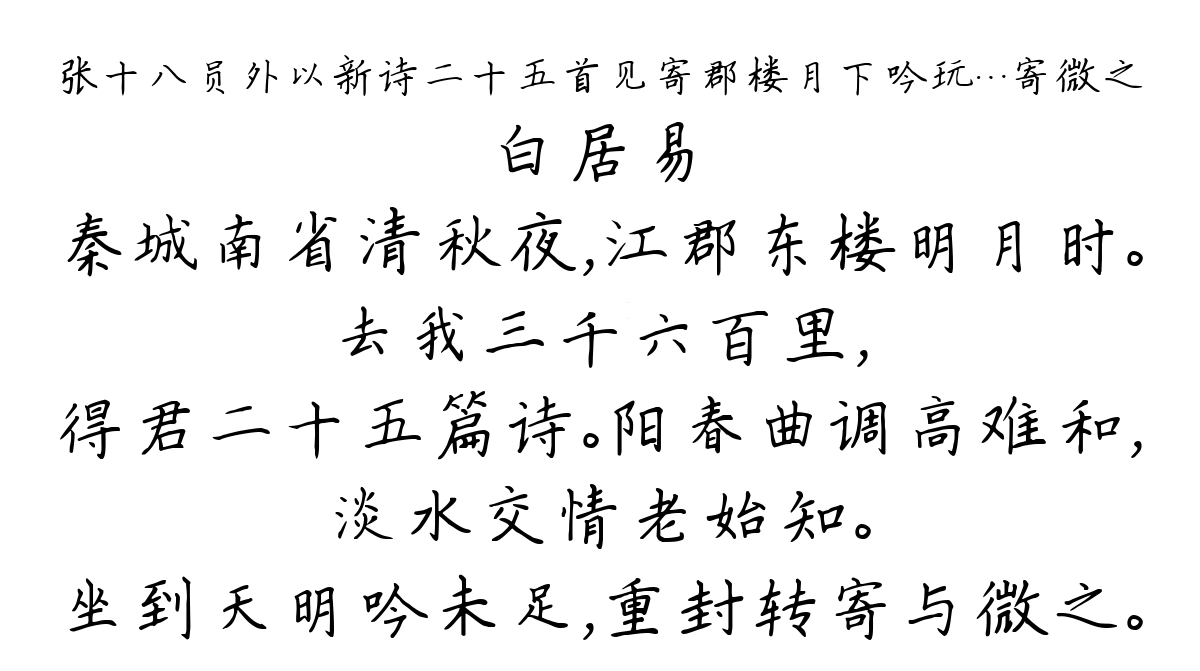 张十八员外以新诗二十五首见寄郡楼月下吟玩…寄微之
白居易
秦城南省清秋夜,江郡东楼明月时。
去我三千六百里,
得君二十五篇诗。阳春曲调高难和,
淡水交情老始知。
坐到天明吟未足,重封转寄与微之。